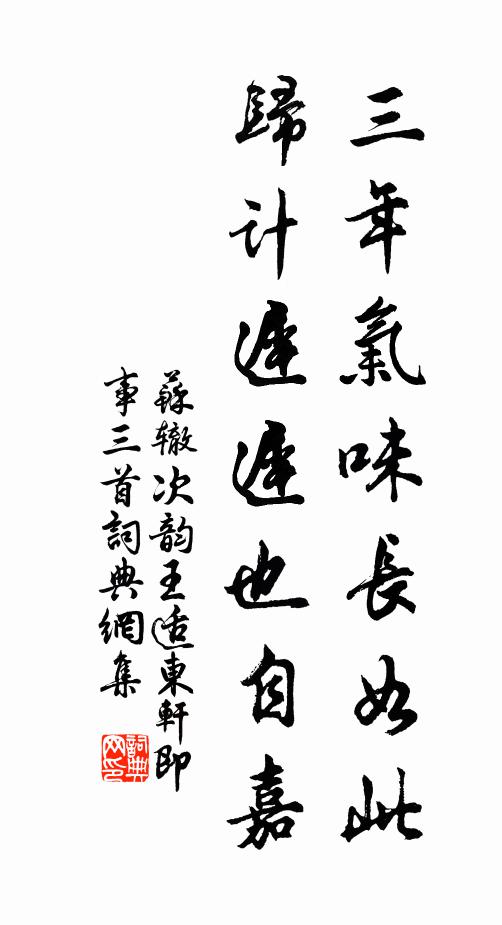 三年氣味長如此
歸計遲遲也自嘉
蘇辙次韵王适東軒即
事三首詞典網集
詞典
网印